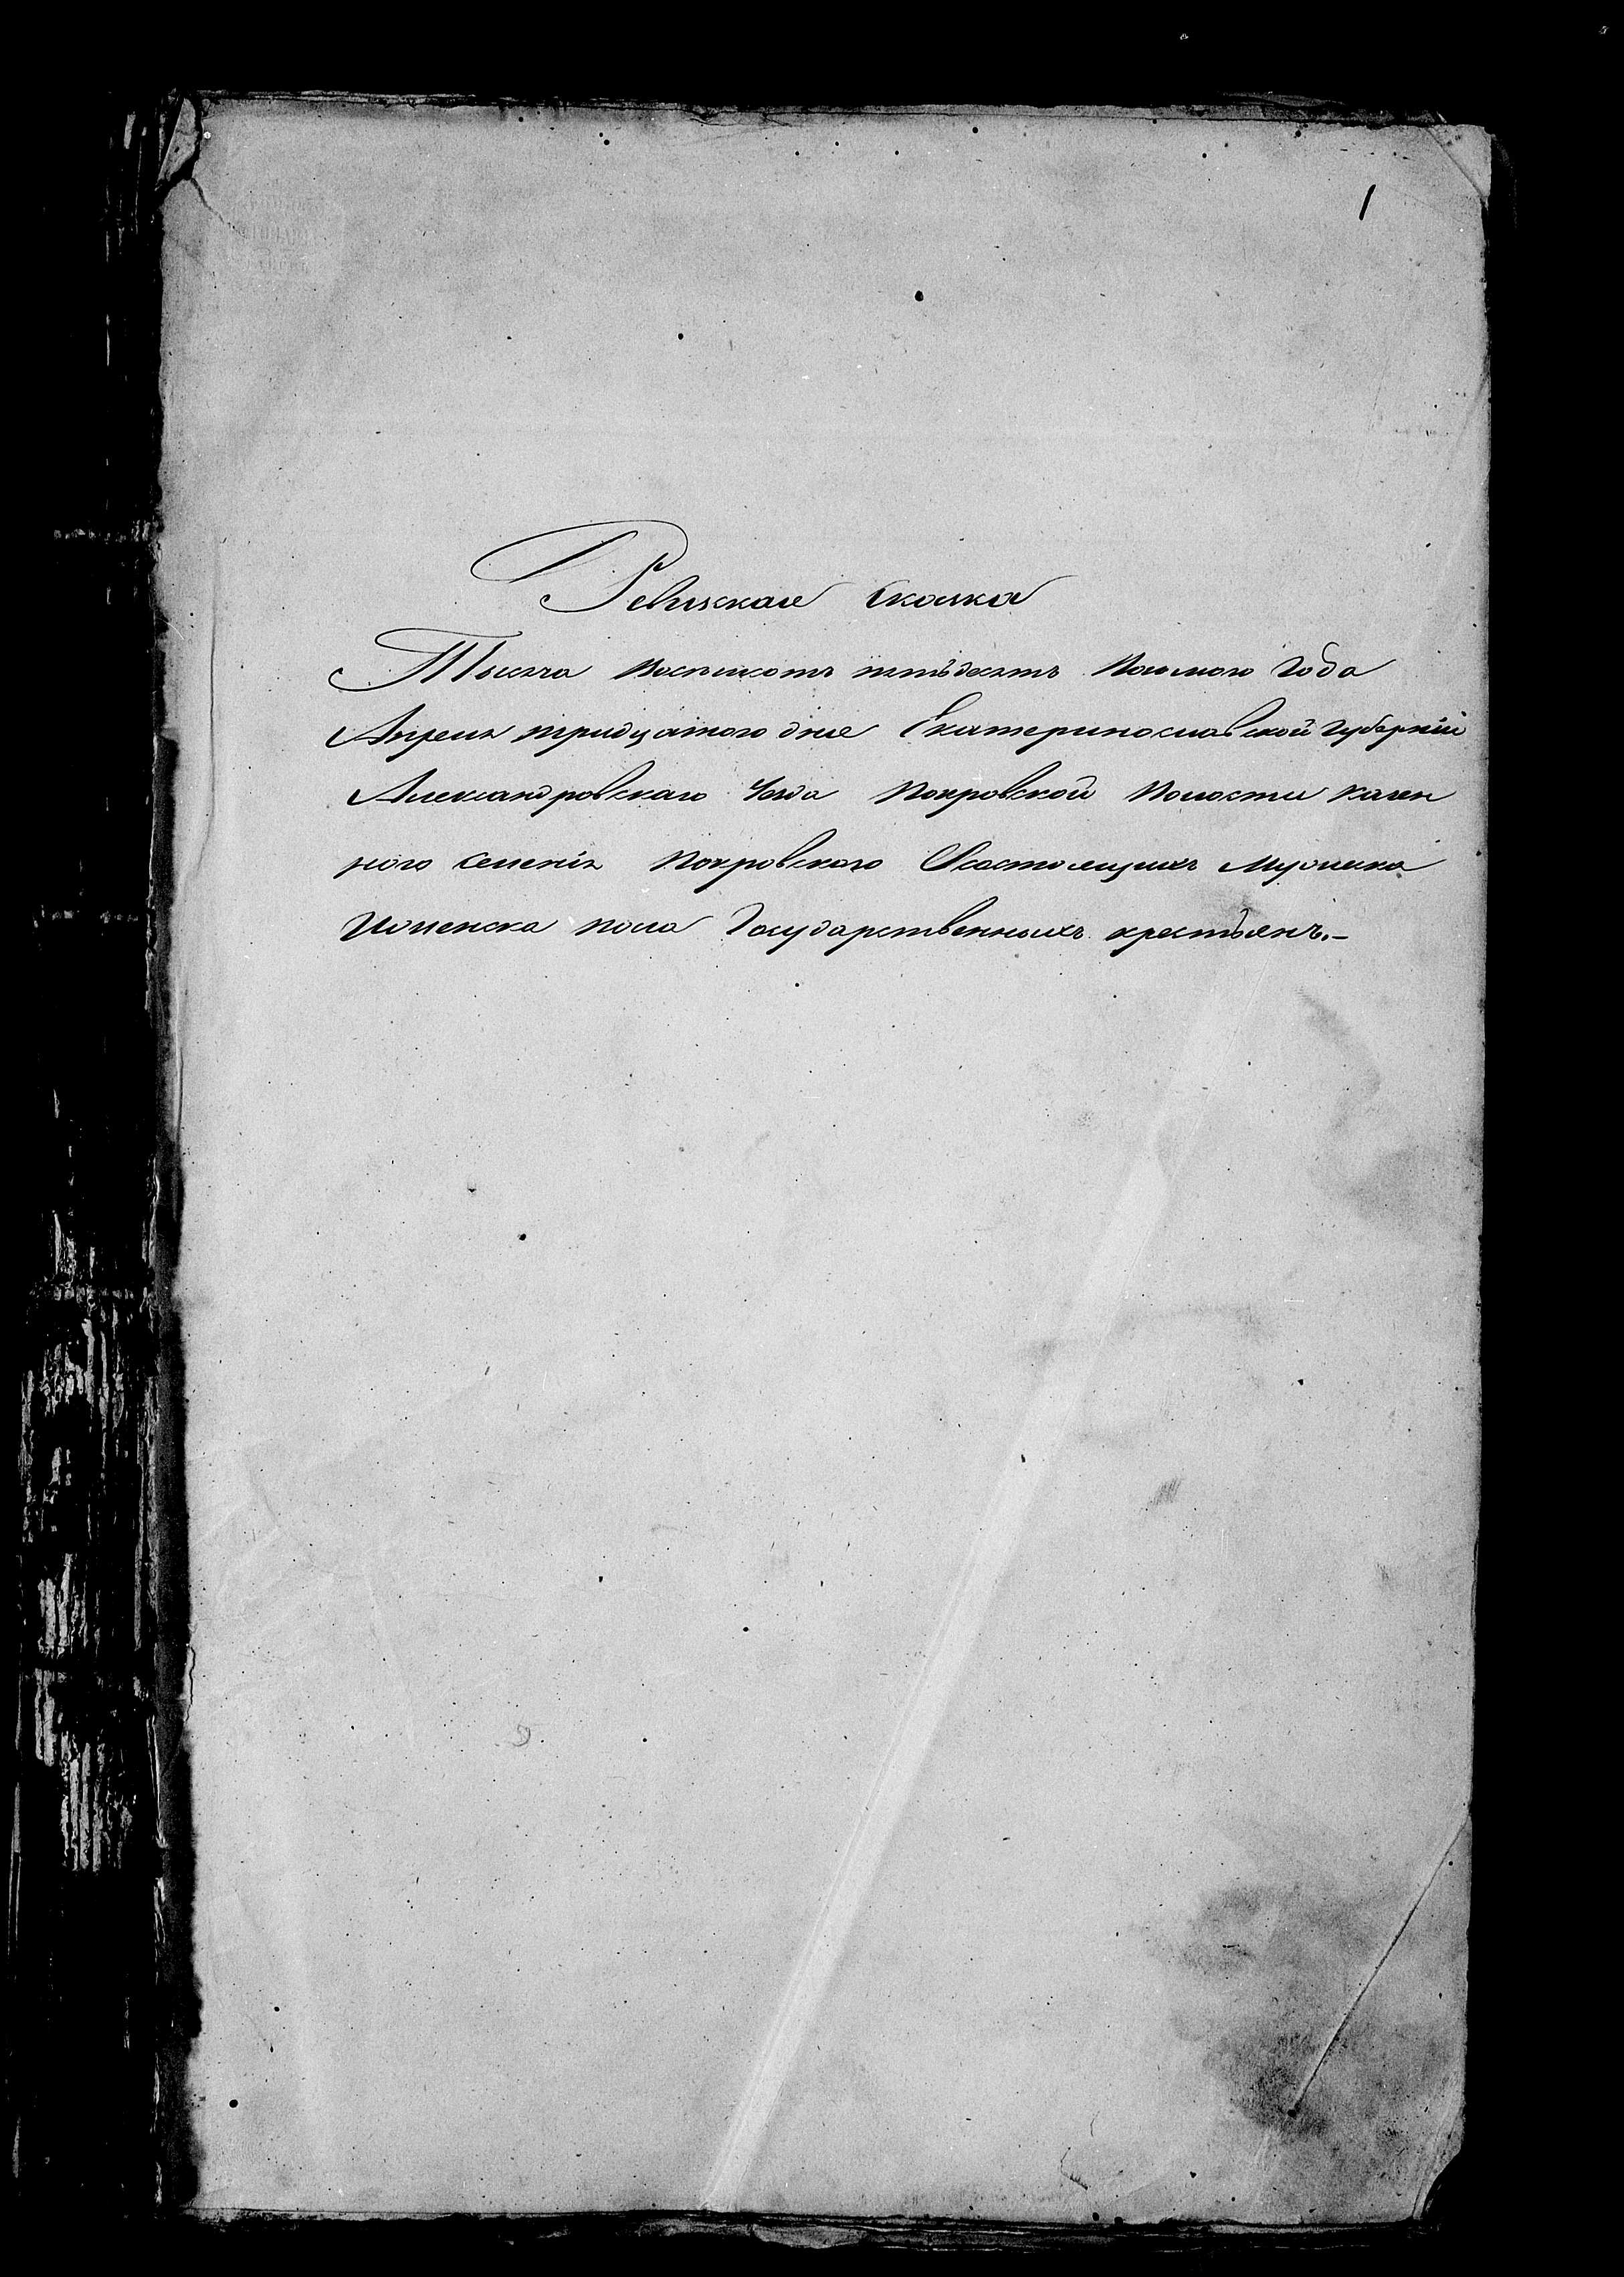 1
Ревизская Сказка
Тысяча восемсотъ пятьдесятъ восмого Года
Апреля тридцатого дня Екатеринославской Губерніи
Александровскаго Уезда Покровской Волости казен
ного селенія Покровского О состоящихъ Мужеска
и женска пола Государственныхъ крестьянъ.-